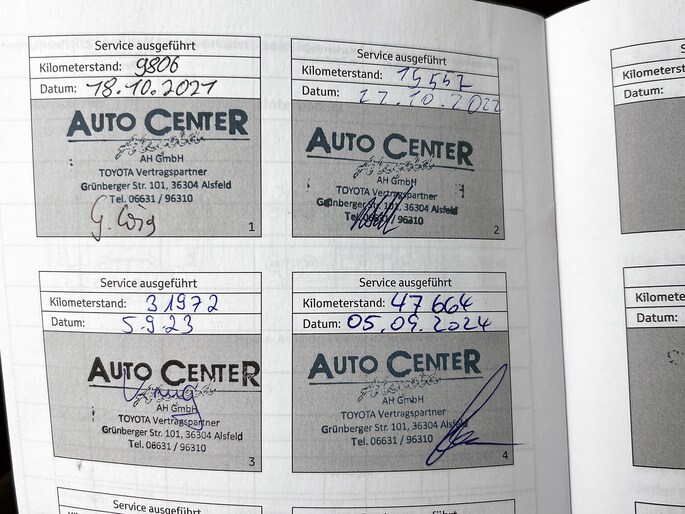 Service ausgeführt
Kilometerstand: 9806
Datum: 18.10.2021
AUTO CENTER
AH GmbH
TOYOTA Vertragspartner
Grünberger Str. 101, 36304 Alsfeld
Tel. 06631 / 96310
1
Service ausgeführt
Kilometerstand: 19557
Datum: 27.10.2022
AUTO CENTER
AH GmbH
TOYOTA Vertragspartner
Grünberger Str. 101, 36304 Alsfeld
Tel. 06631 / 96310
2
Service ausgeführt
Kilometerstand: 31972
Datum: 5.9.23
AUTO CENTER
AH GmbH
TOYOTA Vertragspartner
Grünberger Str. 101, 36304 Alsfeld
Tel. 06631 / 96310
3
Service ausgeführt
Kilometerstand: 47664
Datum: 05.09.2024
AUTO CENTER
AH GmbH
TOYOTA Vertragspartner
Grünberger Str. 101, 36304 Alsfeld
Tel. 06631 / 96310
4
Service ausgeführt
Datum:
Datum: